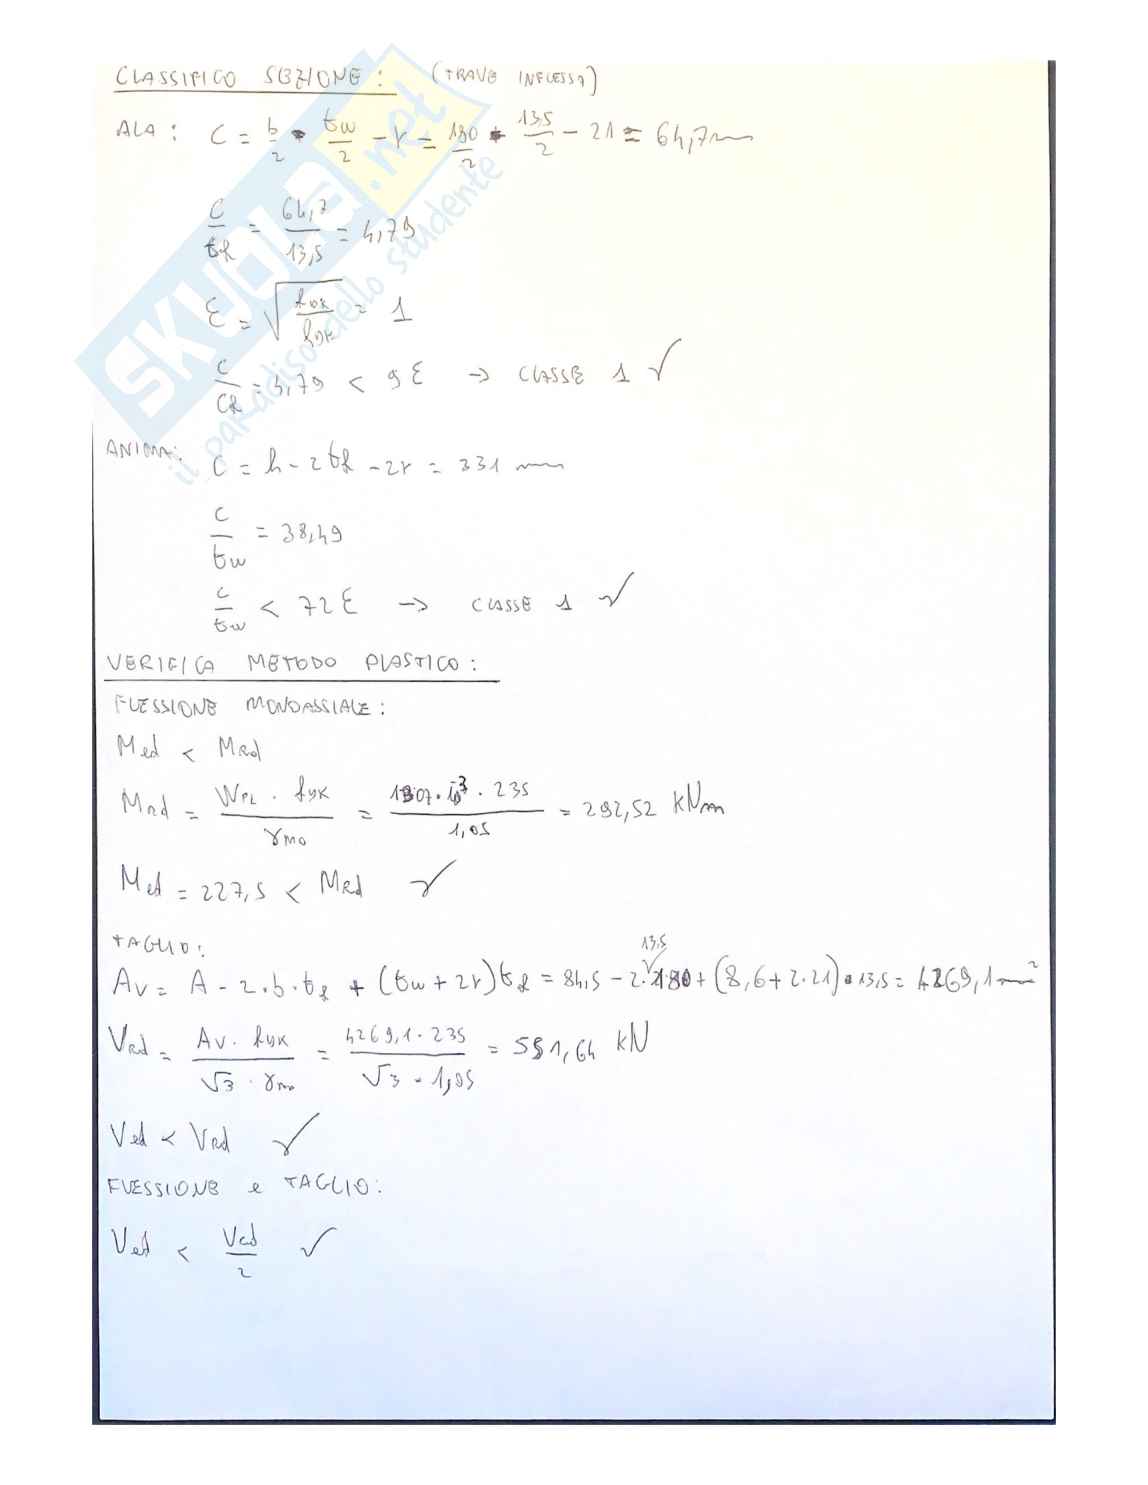 CLASSIFICO SEZIONE: (TRAVE INFLESSA)
ALA: C = b/2 - tw/2 - r = 180/2 - 13,5/2 - 21 = 64,7 mm
c/tf = 64,7/13,5 = 4,79
ε = √(fyk/fyk) = 1
c/cf = 4,79 < 9ε → CLASSE 1 ✓
ANIMA: C = h - 2tf - 2r = 331 mm
c/tw = 38,49
c/tw < 72ε → CLASSE 1 ✓
VERIFICA METODO PLASTICO:
FLESSIONE MONOASSIALE:
Med < MRd
MRd = WPL · fyk / γm0 = 1307·10³ · 235 / 1,05 = 292,52 kNm
Med = 227,5 < MRd ✓
TAGLIO:
Av = A - 2·b·tf + (tw + 2r)tf = 84,5 - 2·13,5·180 + (8,6 + 2·21)·13,5 = 4269,1 mm²
VRd = Av · fyk / √3 · γm0 = 4269,1 · 235 / √3 · 1,05 = 551,64 kN
Ved < VRd ✓
FLESSIONE e TAGLIO:
Ved < Vcd/2 ✓
SKUOLA.net
il paradiso dello studente